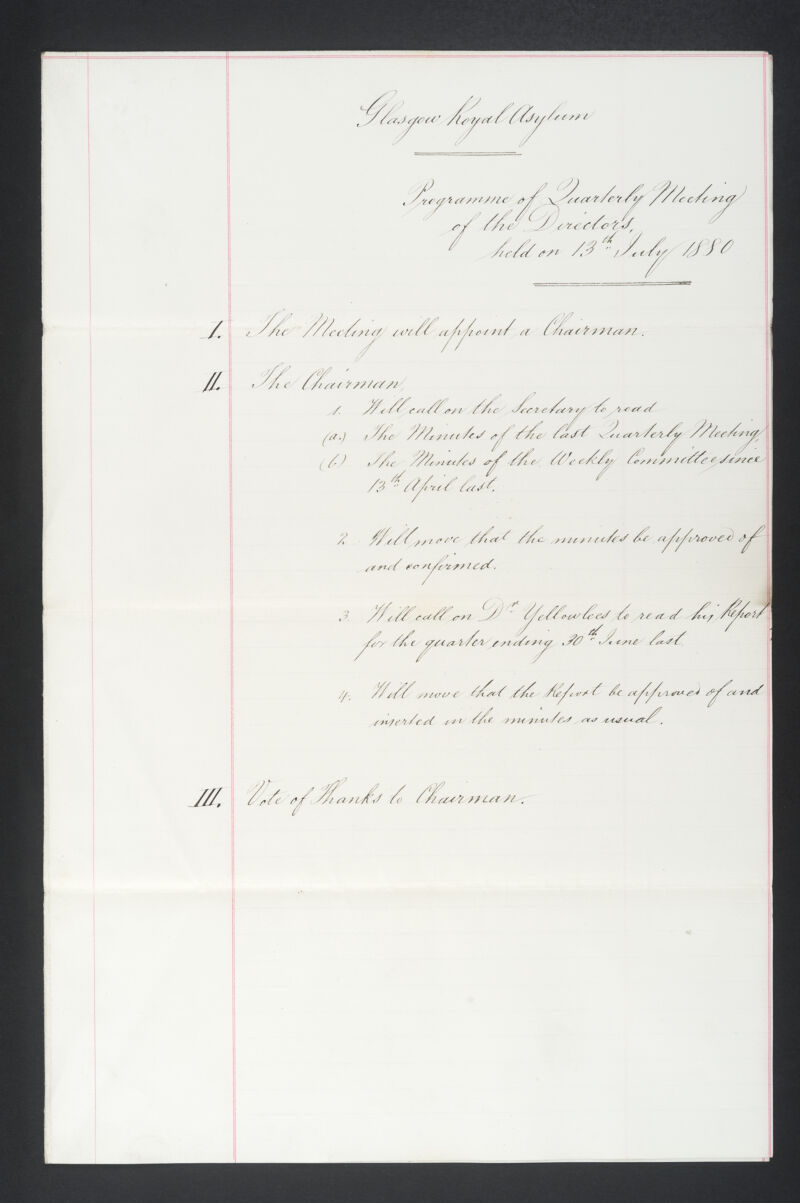 Glasgow Royal Asylum
Programme of Quarterly Meeting
of the Directors,
held on 13th July 1880
I. The Meeting will appoint a Chairman.
II. The Chairman,
1. Will call on the Secretary to read
(a.) The Minutes of the last Quarterly Meeting,
(b) The Minutes of the Weekly Committee since
13th April last.
2. Will move that the minutes be approved of
and confirmed.
3. Will call on Dr Yellowlees to read his Report
for the quarter ending 30th June last.
4. Will move that the Report be approved of and
inserted in the minutes as usual.
III. Vote of Thanks to Chairman.